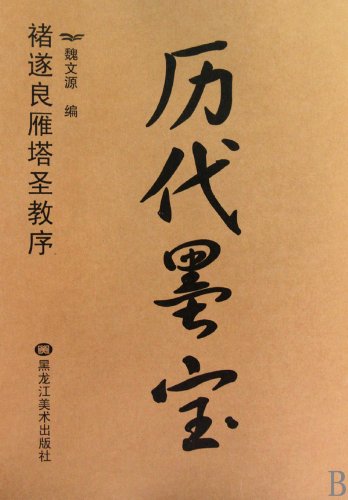 历代墨宝
魏文源 编
褚遂良雁塔圣教序
黑龙江美术出版社
B